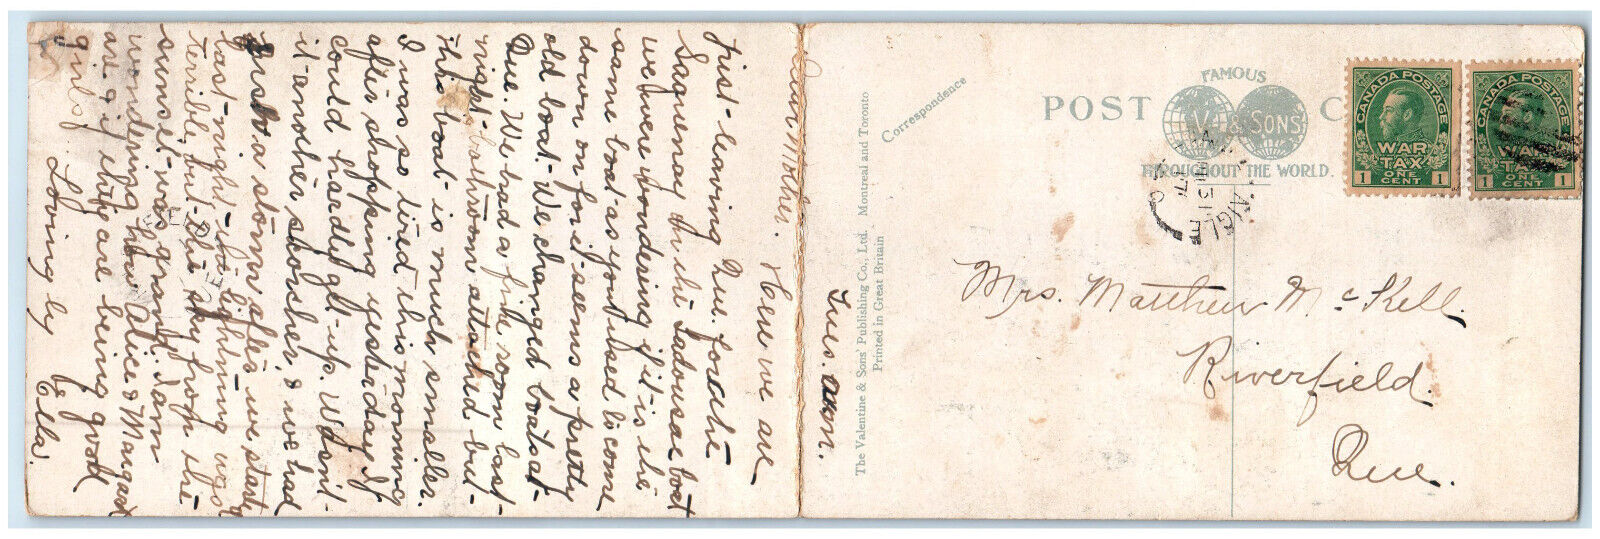 Tues. a.m.
Dear Mother.
Here we are
just leaving Que. for the
Saguenay on the Tadousac boat
we were wondering if it is the
same boat as you used to come
down on for it seems a pretty
old boat. We changed boats at
Que. We had a fine room last
night - bathroom attached but
this boat is much smaller.
I was so tired this morning
after shopping yesterday I
could hardly get up. Wasn't
it another scorcher, & we had
a storm after we started
last night - the lightning was
terrible, but the sky from the
sunset was grand. I am
wondering how Alice & Margaret
are & if they are being good
girls.
Loving ly
Ella.
POST C
FAMOUS
V. & SONS
THROUGHOUT THE WORLD
Correspondence
The Valentine & Sons' Publishing Co., Ltd. Montreal and Toronto
Printed in Great Britain
CANADA POSTAGE
WAR
TAX
ONE
CENT
1 1
CANADA POSTAGE
WAR
TAX
ONE CENT
1 1
AIGLE
Mrs. Matthew McKell.
Riverfield.
Que.